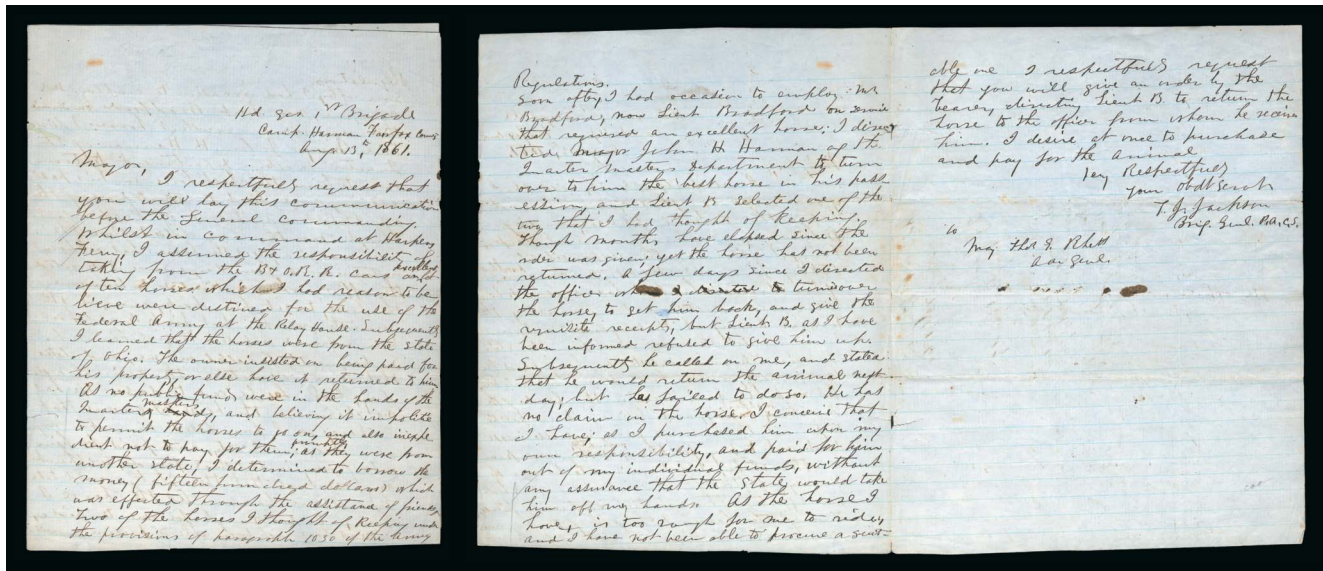 Hd Qrs. 1st Brigade
Camp Harman Fairfax
Aug 13th, 1861.
Major,
I respectfully request that
you will lay this communication
before the General commanding.
Whilst in command at Harpers
Ferry, I assumed the responsibility of
taking from the B & O. R. R. cars
of ten horses which I had reason to be
lieve were destined for the use of the
Federal Army at the Relay House. Subsequently
I learned that the horses were from the State
of Ohio. The owner insisted on being paid for
his property or else have it returned to him.
As no public funds were in the hands of the
Quarter master, and believing it impolitic
to permit the horses to go on, and also inexpe
dient not to pay for them promptly, as they were from
another state, I determined to borrow the
money (fifteen hundred dollars) which
was effected through the assistance of friends.
Two of the horses I thought of keeping under
the provisions of paragraph 1030 of the Army
Regulations.
Soon after, I had occasion to employ Mr
Bradford, now Lieut Bradford on service
that required an excellent horse; I direc
ted Major John H Harman of the
Quarter Masters Department to turn
over to him the best horse in his poss
ession, and Lieut B selected one of the
two that I had thought of keeping.
Though months have elapsed since the
order was given, yet the horse has not been
returned. A few days since I directed
the officer to turnover
the horse, to get him back, and give the
requisite receipts, but Lieut B. as I have
been informed refused to give him up.
Subsequently he called on me, and stated
that he would return the animal next
day; but has failed to do so. He has
no claim in the horse. I conceive that
I have; as I purchased him upon my
own responsibility, and paid for him
out of my individual funds, without
any assurance that the State would take
him off my hands. As the horse I
have, is too rough for me to ride,
and I have not been able to procure a suit-
able one I respectfully request
that you will give an order by the
bearer, directing Lieut B. to return the
horse to the officer from whom he received
him. I desire at once to purchase
and pay for the animal
Very Respectfully
Your obdt Servt
T. J. Jackson
Brig. Genl. P.A.C.S.
To
Maj Thos G. Rhett
A. A. Genl.